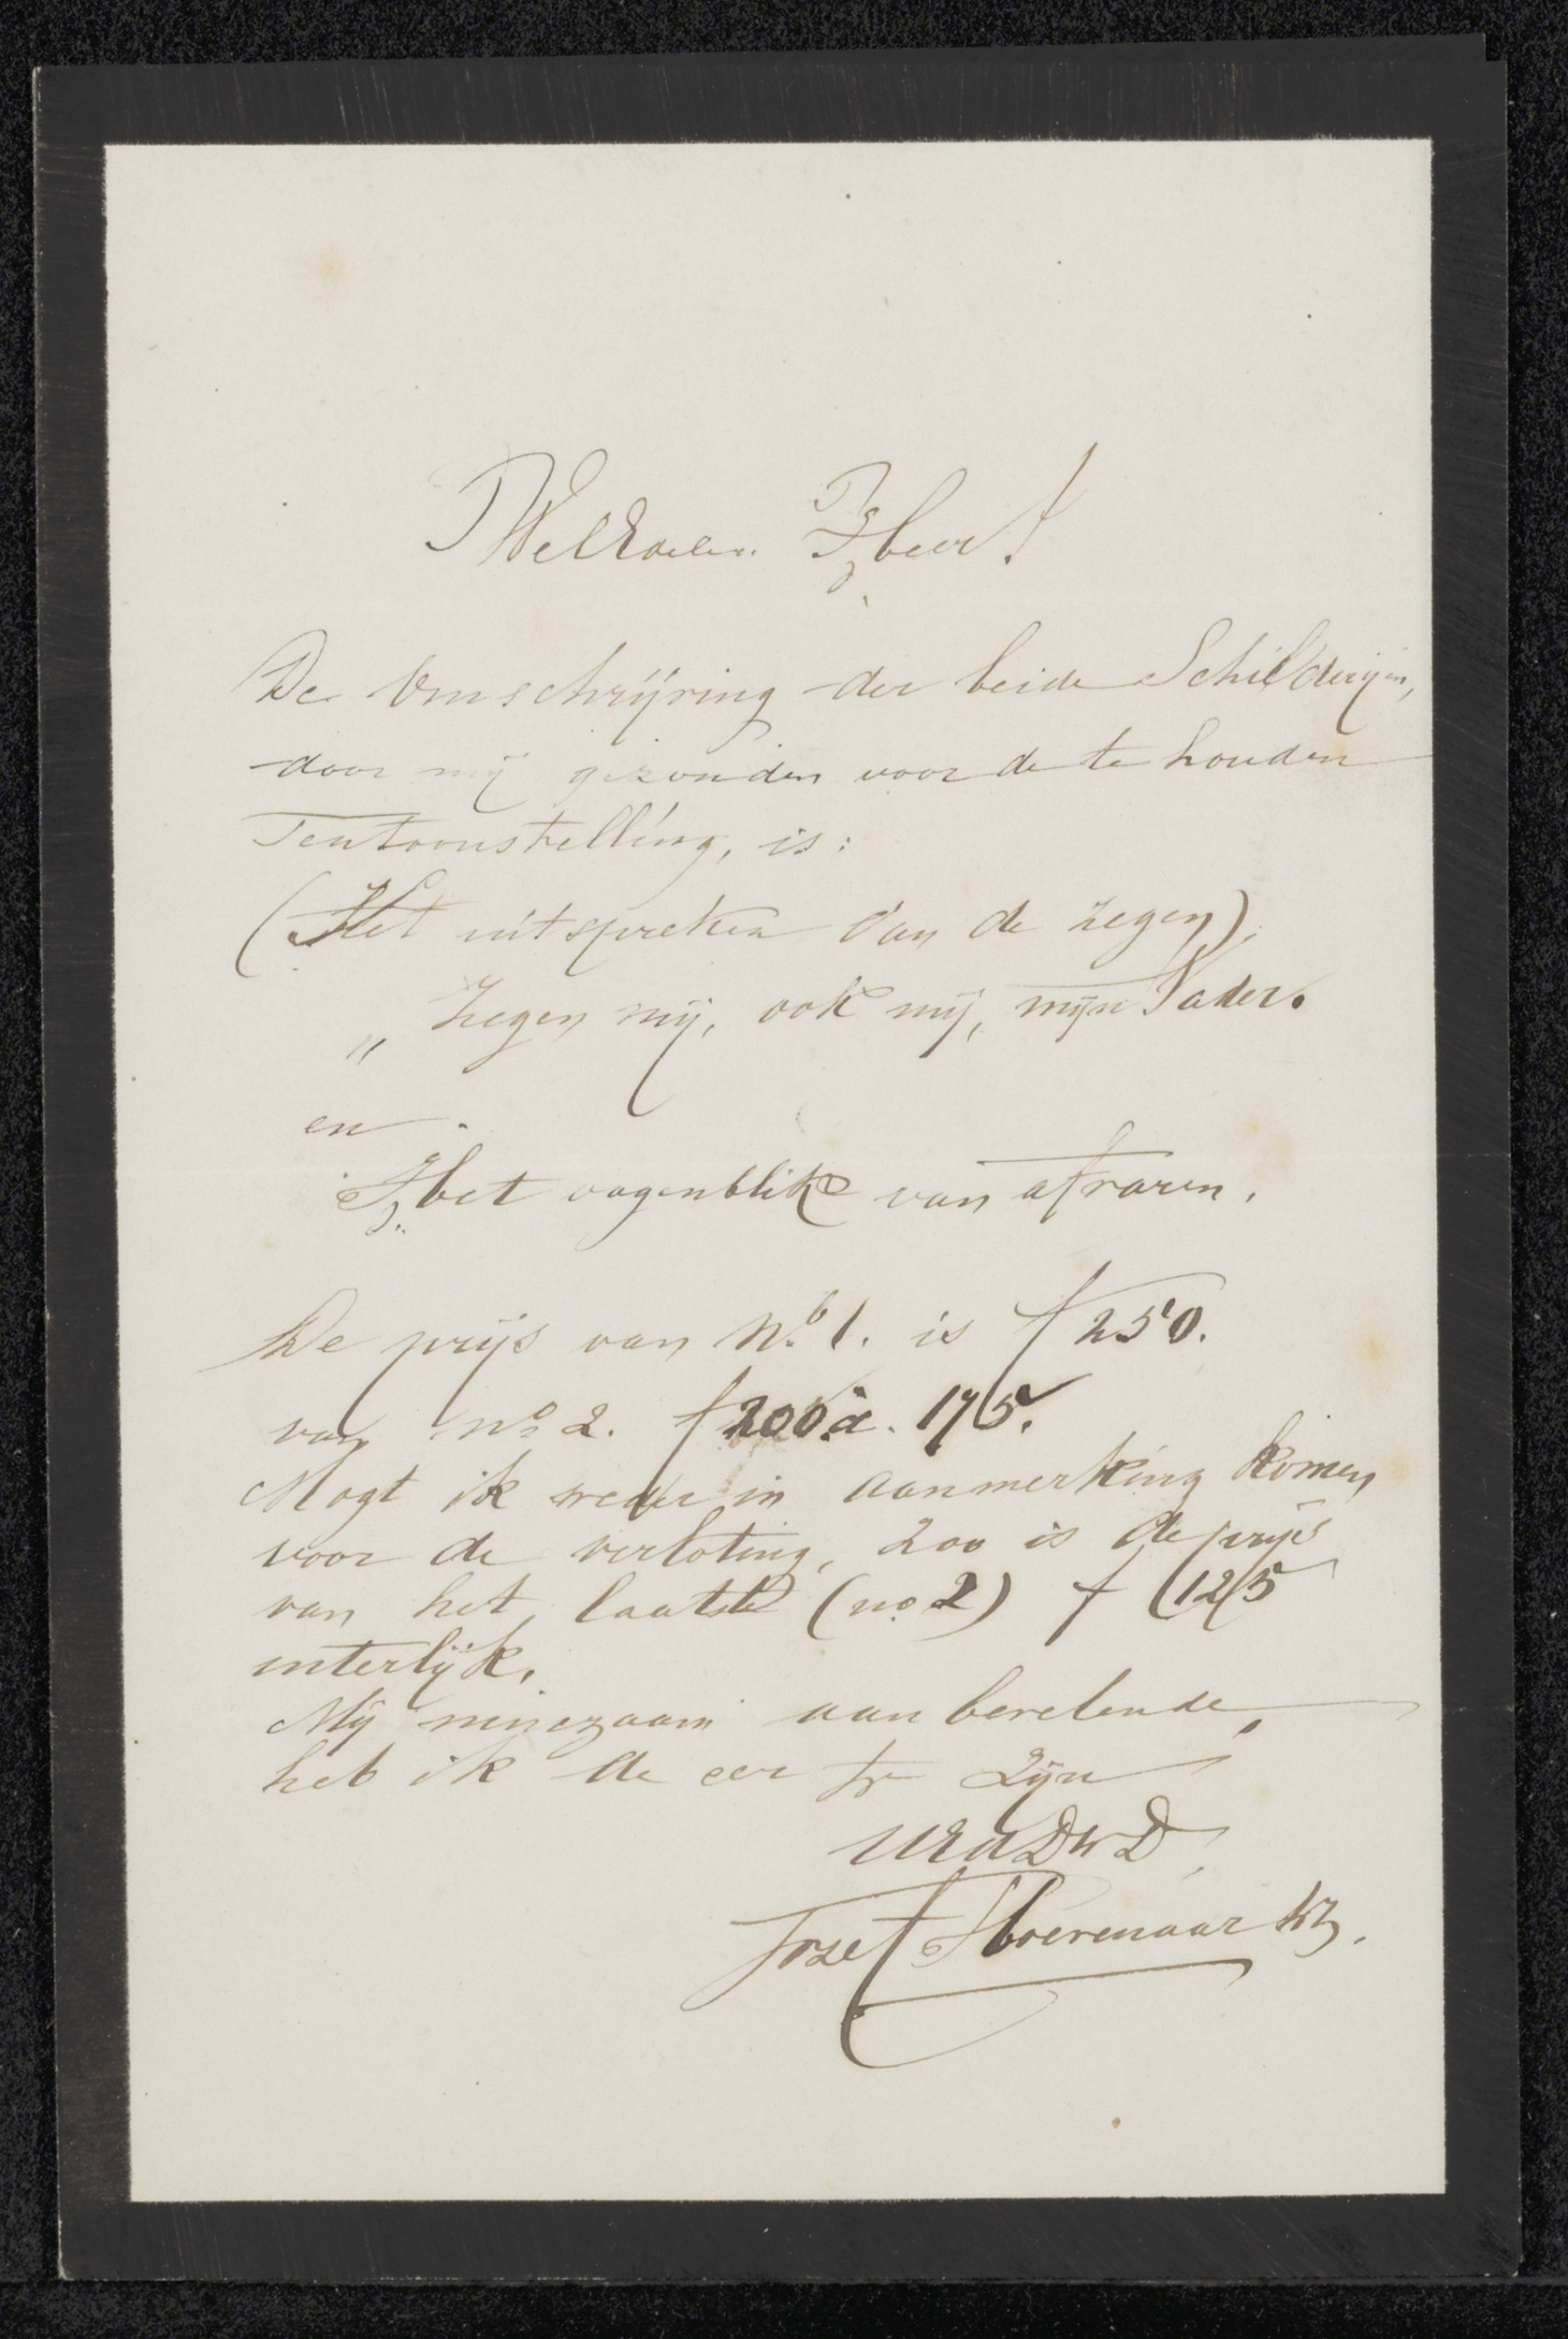 WelEdele Heer!
De Omschrijving der beide Schilderijen,
door mij gezonden voor de te houden
Tentoonstelling, is:
(Het uitspreken van de zegen)
„ Zegen mij, ook mij, mijn Vader.
en
Het oogenblik van afvaren.
De prijs van No. 1. is f 250.
van no 2. f 200 à. 175.
Mogt ik weder in aanmerking komen
voor de verloting, zoo is de prijs
van het laatste (no 2) f 125
uiterlijk.
Mij minzaam aanbevelende,
heb ik de eer te zijn
UEdDwD
Jozef Hoevenaar Wz.